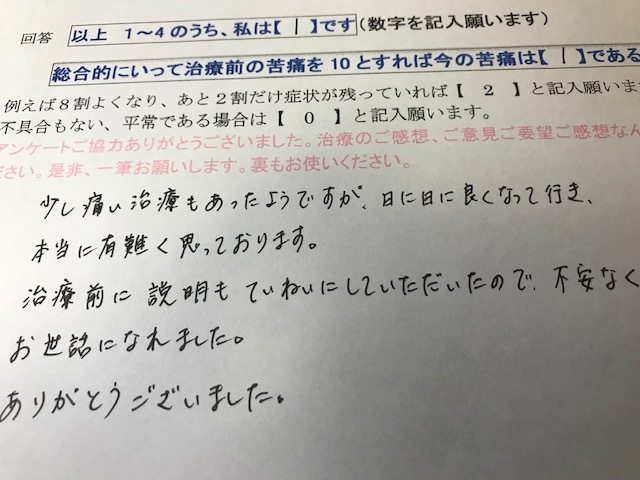 回答 以上 1～4のうち、私は【 1 】です(数字を記入願います)
総合的にいって治療前の苦痛を10とすれば今の苦痛は【 1 】である
例えば8割よくなり、あと2割だけ症状が残っていれば【 2 】と記入願いま
不具合もない、平常である場合は【 0 】と記入願います。
アンケートご協力ありがとうございました。治療のご感想、ご意見ご要望ご感想なん
ださい。是非、一筆お願いします。裏もお使いください。
少し痛い治療もあったようですが、日に日に良くなって行き、
本当に有難く思っております。
治療前に説明もていねいにしていただいたので、不安なく
お世話になれました。
ありがとうございました。